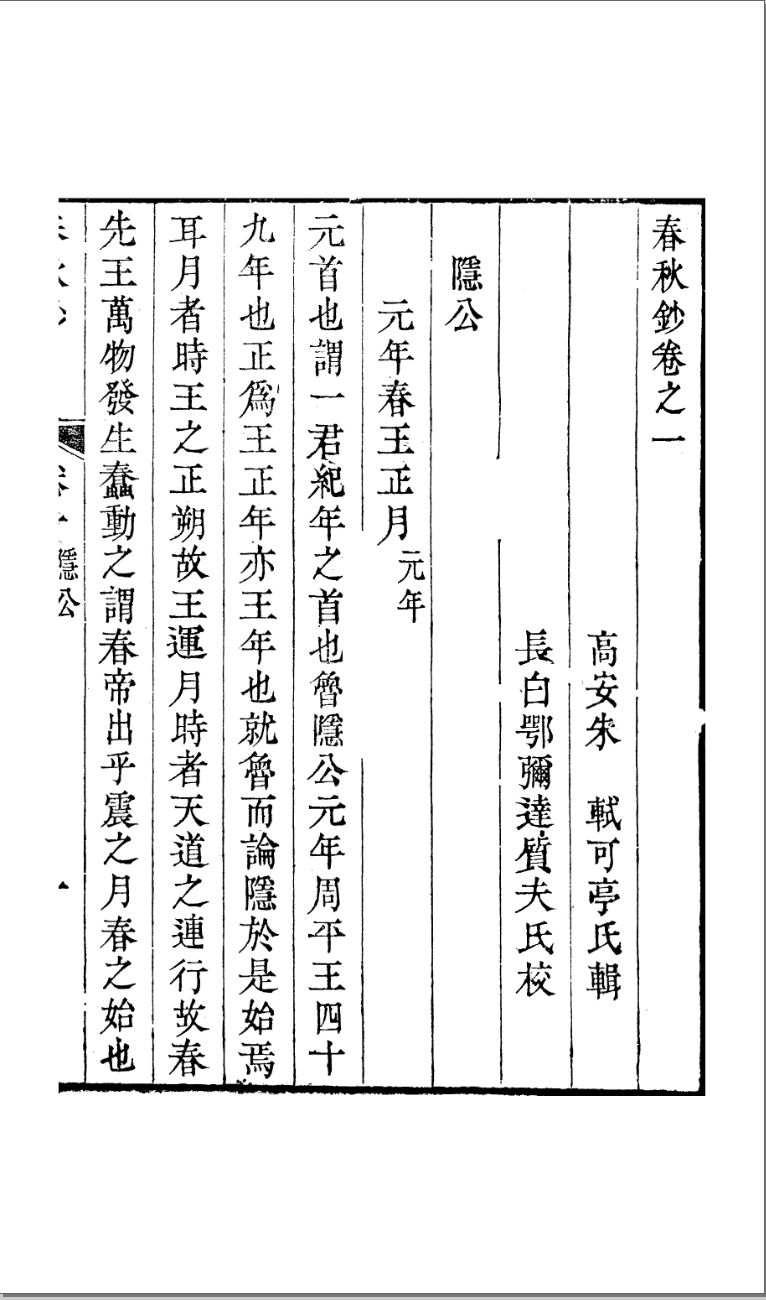 春秋鈔卷之一
高安朱　軾可亭氏輯
長白鄂彌達質夫氏校
隱公
元年春王正月元年
元首也謂一君紀年之首也魯隱公元年周平王四十
九年也正爲王正年亦王年也就魯而論隱於是始焉
耳月者時王之正朔故王運月時者天道之連行故春
先王萬物發生蠢動之謂春帝出乎震之月春之始也
隱公